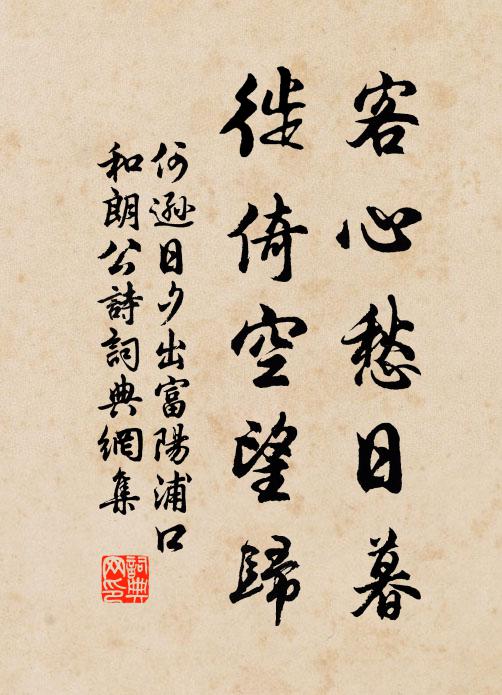 客心愁日暮
徙倚空望歸
何遜日夕出富陽浦口
和朗公詩詞典網集
詞典
网印